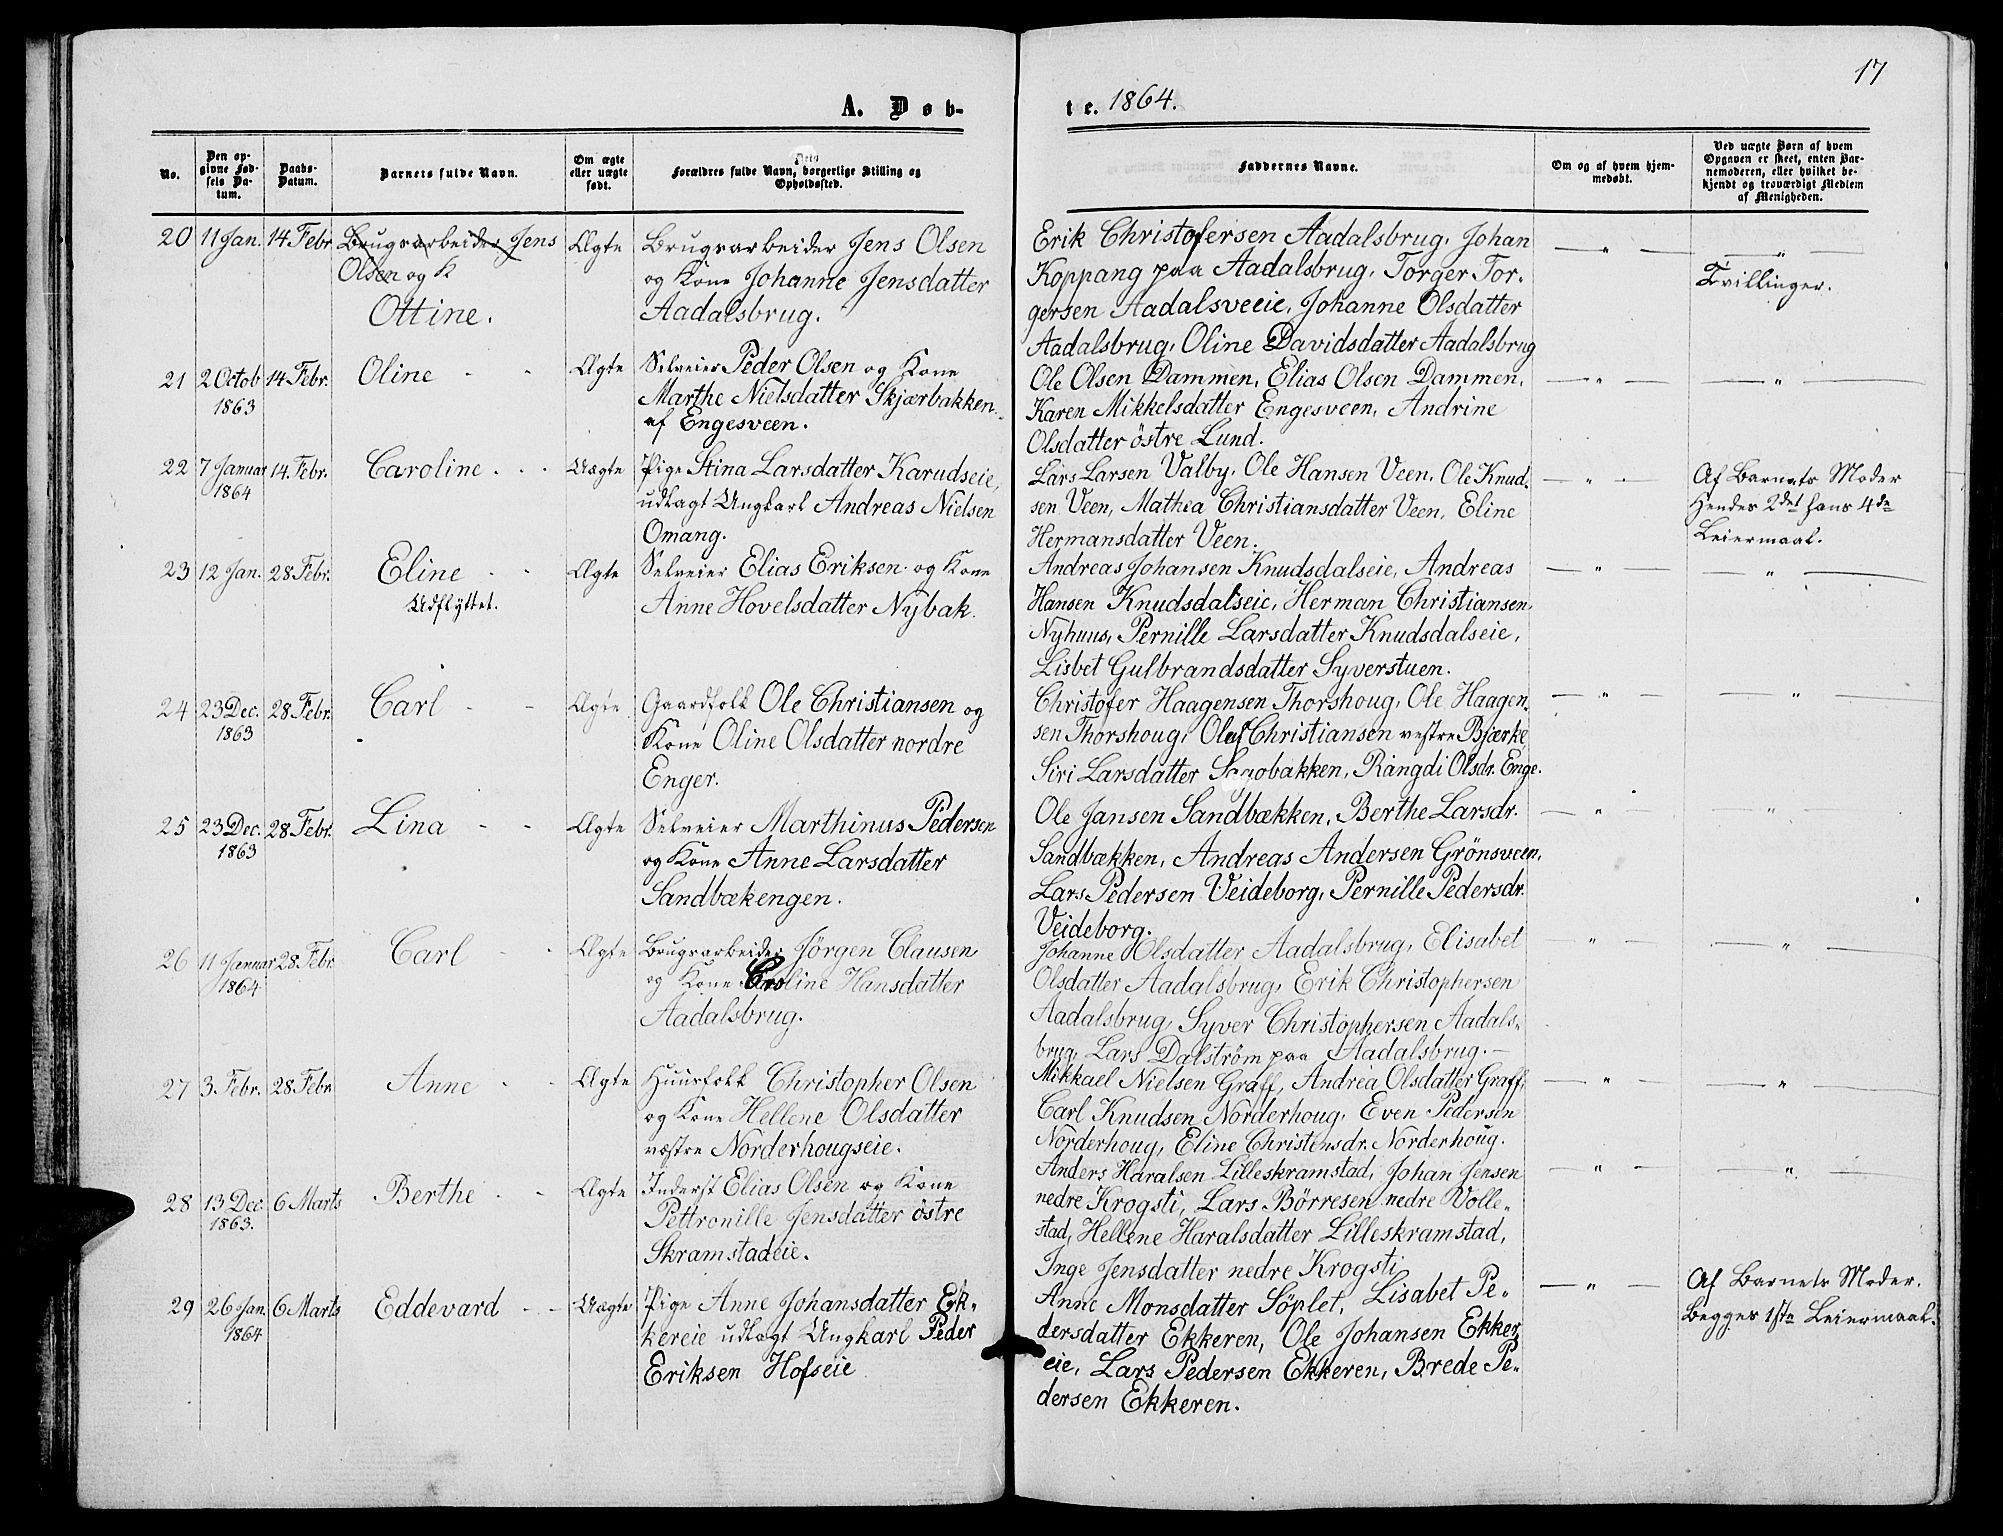 17
A. Døb-
te. 1864.
No.
Den op-
givne Fød-
sels Da-
tum.
Daabs-
Datum.
Barnets fulde Navn.
Om ægte
eller uægte
født.
Forældres fulde Navn, borgerlige Stilling og
Opholdssted.
Faddernes Navne.
Om og af hvem hjem-
medøbt.
Ved uægte Børn af hvem
Opgaven er skeet, enten Bar-
nemoderen, eller hvilket be-
kjendt og troværdigt Medlem
af Menigheden.
20 11 Jan. 14 Febr. Brugsarbeider Jens
Olsen og K
Ottine.
Ægte
Brugsarbeider Jens Olsen
og Kone Johanne Jensdatter
Aadalsbrug.
Erik Christofersen Aadalsbrug, Johan
Koppang paa Aadalsbrug, Torger Tor-
gersen Aadalsveeie, Johanne Olsdatter
Aadalsbrug, Oline Davidsdatter Aadalsbrug
— " — — " —
Tvillinger.
21 2 Octob 14 Febr. Oline - - Ægte
1863
Selveier Peder Olsen og Kone
Marthe Nielsdatter Skjærbakken
af Engesveen.
Ole Olsen Dammen, Elias Olsen Dammen,
Karen Mikkelsdatter Engesveen, Andrine
Olsdatter østre Lund.
— " — — " —
22 7 Januar 14. Febr. Caroline . . . Uægte
1864
Pige Stina Larsdatter Karudseie,
udlagt Ungkarl Andreas Nielsen
Omang.
Lars Larsen Valby, Ole Hansen Veen, Ole Knud-
sen Veen, Mathea Christiansdatter Veen, Eline
Hermansdatter Veen.
— " —
Af Barnets Moder
Hendes 2det hans 4de
Leiermaal.
23 12 Jan. 28 Febr. Eline - - Ægte
Udflyttet.
Selveier Elias Eriksen og Kone
Anne Hovelsdatter Nybak.
Andreas Johansen Knudsdalseie, Andreas
Hansen Knudsdalseie, Herman Christiansen
Nyhuus, Pernille Larsdatter Knudsdalseie,
Lisbet Gulbrandsdatter Syverstuen.
— " — — " —
24 23 Dec. 28 Febr. Carl - - Ægte
1863
Gaardfolk Ole Christiansen og
Kone Oline Olsdatter nordre
Enger.
Christofer Haagensen Thorshoug, Ole Haagen-
sen Thorshoug, Oluf Christiansen vestre Bjærke
Siri Larsdatter Sagobakken, Rangdi Olsdr. Enge.
— " — — " —
25 23 Dec. 28 Febr. Lina - - Ægte
1863
Selveier Marthinus Pedersen
og Kone Anne Larsdatter
Sandbækengen.
Ole Jansen Sandbækken, Berthe Larsdr.
Sandbækken, Andreas Andersen Grönsveen,
Lars Pedersen Veideborg, Pernille Pedersdr.
Veideborg.
— " "
26 11 Januar 28 Febr. Carl - - Ægte
1864
Brugsarbeider Jörgen Clausen
og Kone Caroline Hansdatter
Aadalsbrug.
Johanne Olsdatter Aadalsbrug, Elisabet
Olsdatter Aadalsbrug, Erik Christophersen
Aadalsbrug, Syver Christophersen Aadals-
brug, Lars Dalström paa Aadalsbrug.—
— " — — " —
27 3. Febr. 28 Febr. Anne - - Ægte
Huusfolk Christopher Olsen
og Kone Hellene Olsdatter
vestre Norderhougseie.
Mikkael Nielsen Graff, Andrea Olsdatter Graff,
Carl Knudsen Norderhoug, Even Pedersen
Norderhoug, Eline Christensdr. Norderhoug.
— " — — " —
28 13 Dec. 6 Marts Berthe - - Ægte
1863.
Inderst Elias Olsen og Kone
Pettronille Jensdatter östre
Skramstadeie.
Anders Haralsen Lilleskramstad, Johan Jensen
nedre Krogsti, Lars Börresen nedre Volle-
stad, Hellene Haralsdatter Lilleskramstad,
Inge Jensdatter nedre Krogsti
— " — — " —
29 26 Jan. 6 Marts Eddevard - - Uægte
1864
Pige Anne Johansdatter Ek-
kereie udlagt Ungkarl Peder
Eriksen Hofseie
Anne Monsdatter Söplet, Lisabet Pe-
dersdatter Ekkeren, Ole Johansen Ekker
eie, Lars Pedersen Ekkeren, Brede Pe-
dersen Ekkeren.
— " —
Af Barnets Moder.
Begges 1ste Leiermaal.